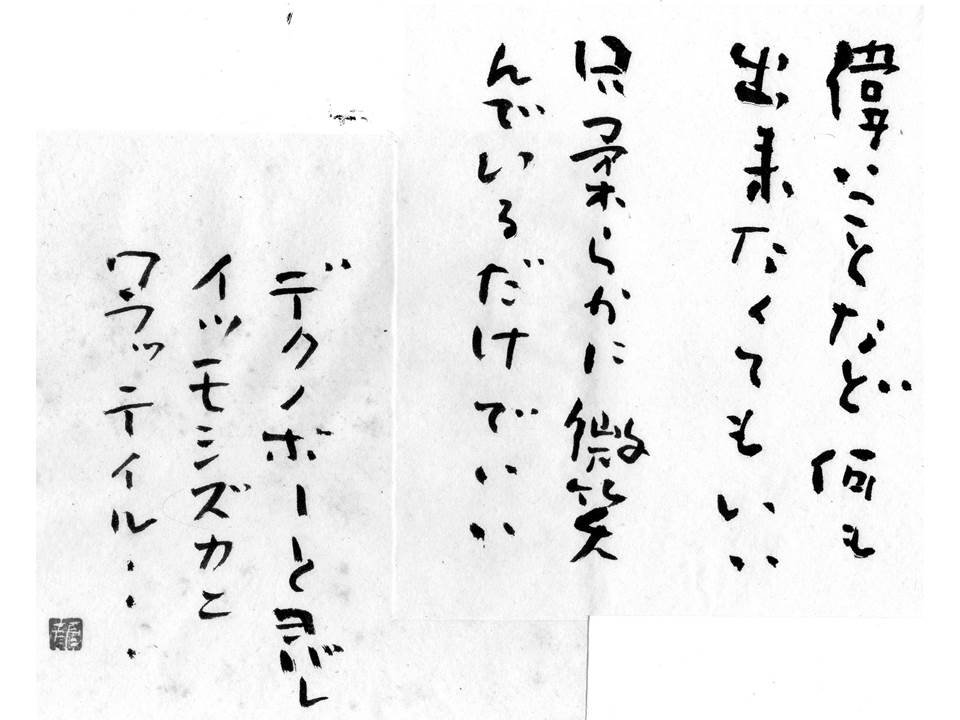 偉いことなど何も
出来なくてもいい
只柔らかに微笑
んでいるだけでいい
デクノボーとヨバレ
イツモシズカニ
ワラッテイル・・・・